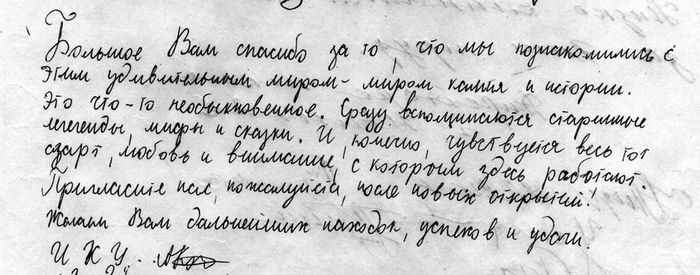 Большое Вам спасибо за то, что мы познакомились с
этим удивительным миром - миром камня и истории.
Это что-то необыкновенное. Сразу вспоминаются старинные
легенды, мифы и сказки. И, конечно, чувствуется весь тот
азарт, любовь и внимание, с которым здесь работают.
Пригласите нас, пожалуйста, после новых открытий!
Желаем Вам дальнейших находок, успехов и удачи.
И К У.